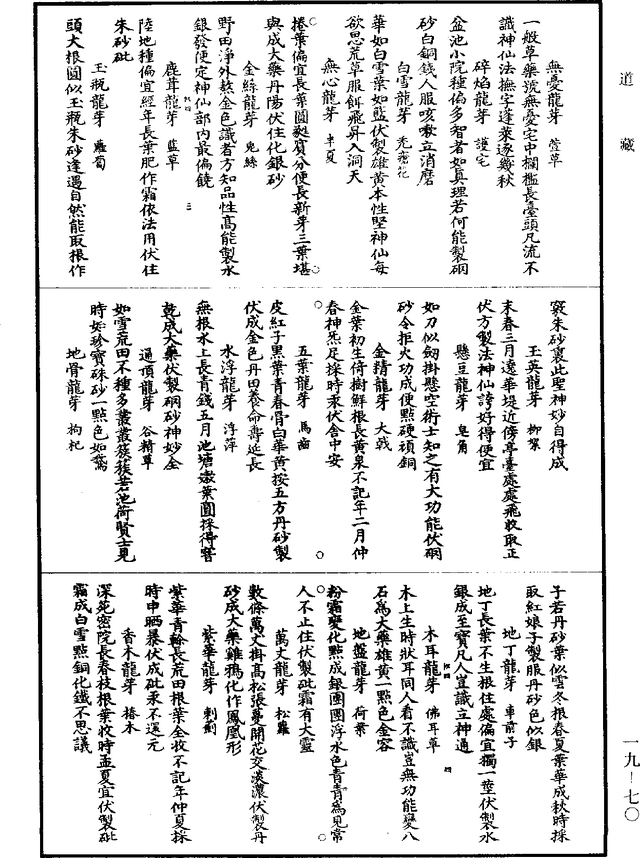 道藏
無憂龍芽　萱草
一般草藥號無憂宅中欄檻長臺頭凡流不
識神仙法撫字蓬萊逐幾秋
碎焰龍芽　護宅
盆池小院種偏多智者如真理若何能製硇
砂白銅錢人服咳嗽立消磨
白雪龍芽　禿瘡花
華如白雪葉如藍伏製雄黃本性堅神仙每
欲思荒草服餌飛昇入洞天
無心龍芽　半夏
捲葉偏宜長葉圓㪚寶分便長新芽三葉堪
與成大藥丹陽伏住化銀砂
金絲龍芽　兔絲
野田淨外熬金色識者方知品性高能製水
銀發便定神仙部內最偏饒
鹿茸龍芽　藍草
陸地種偏宜經年長葉肥作霜依法用伏住
朱砂砒
玉瓶龍芽　蘿蔔
頭大根圓似玉瓶朱砂逢遇自然能取根作
竅朱砂裏此聖神妙自得成
玉英龍芽　柳絮
末春三月遶華堤近傍亭臺處處飛收取正
伏方製法神仙誇好得便宜
懸豆龍芽　皂角
如刀似劒掛懸空術士知之有大功能伏硇
砂令拒火功成便點硬頑銅
金精龍芽　大戟
金葉初生倚樹鮮根長黃泉不記年二月仲
春神炁足採時汞伏舍中安
五葉龍芽　馬齒
皮紅子黑葉青春骨白華黃按五方丹砂製
伏成金色丹田養命壽延長
水浮龍芽　浮萍
無根水上長青錢五月池塘嫩葉圓採得窨
乾成大藥伏製硇砂神妙全
通頂龍芽　谷精草
如雪荒田不種多叢叢簇簇若池荷賢士見
時如珍寶硃砂一點色如鵞
地骨龍芽　枸杞
子若丹砂葉似雲冬根春夏葉華成秋時採
取紅娘子製服丹砂色似銀
地丁龍芽　車前子
地丁長葉不生根住處偏宜獨一莖伏製水
銀成至寶凡人豈識立神通
木耳龍芽　佛耳草
木上生時狀耳同人看不識豈無功能變八
石為大藥雄黃一點色金容
地盤龍芽　荷葉
粉霜變化點成銀團團浮水色青青為見常
人不止住伏製砒霜有大靈
萬丈龍芽　松蘿
數條萬丈掛高松張蔓開花交淡濃伏製丹
砂成大藥雞鴉化作鳳凰形
紫華龍芽　刺薊
紫華青幹長荒田根葉全收不記年仲夏採
時中晒暴伏成砒汞不還元
香木龍芽　椿木
深苑密院長春枝根葉收時孟夏宜伏製砒
霜成白雪點銅化鐵不思議
一九—七〇